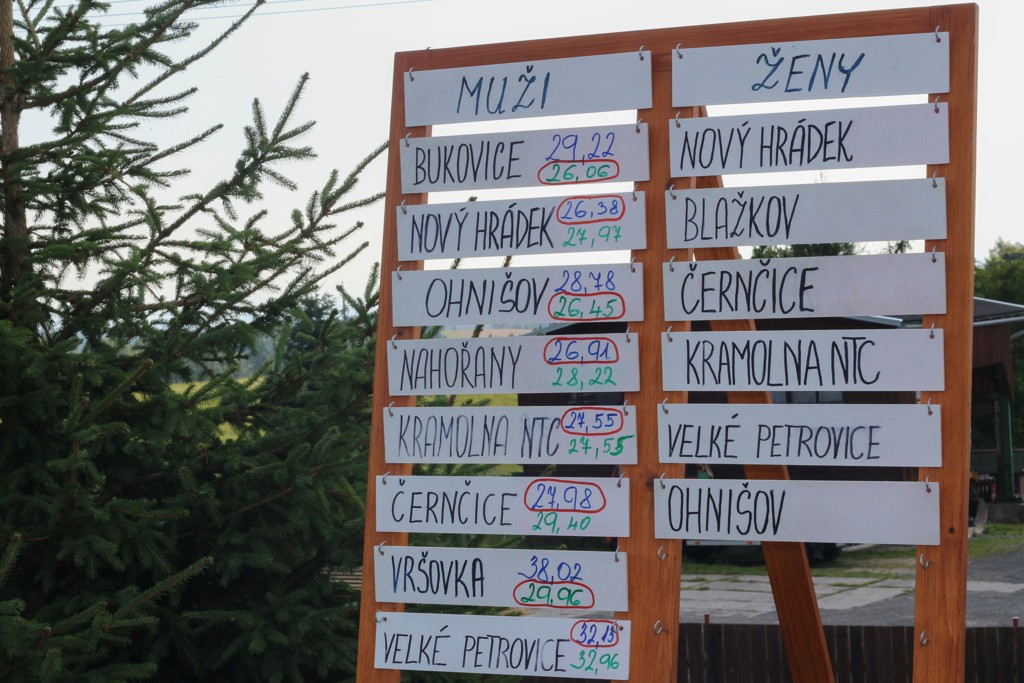 MUŽI
BUKOVICE 29,22
26,06
NOVÝ HRÁDEK 26,38
27,97
OHNIŠOV 28,78
26,45
NAHOŘANY 26,91
28,22
KRAMOLNA NTC 27,55
27,55
ČERNČICE 27,98
29,40
VRŠOVKA 38,02
29,96
VELKÉ PETROVICE 32,13
32,96
ŽENY
NOVÝ HRÁDEK
BLAŽKOV
ČERNČICE
KRAMOLNA NTC
VELKÉ PETROVICE
OHNIŠOV